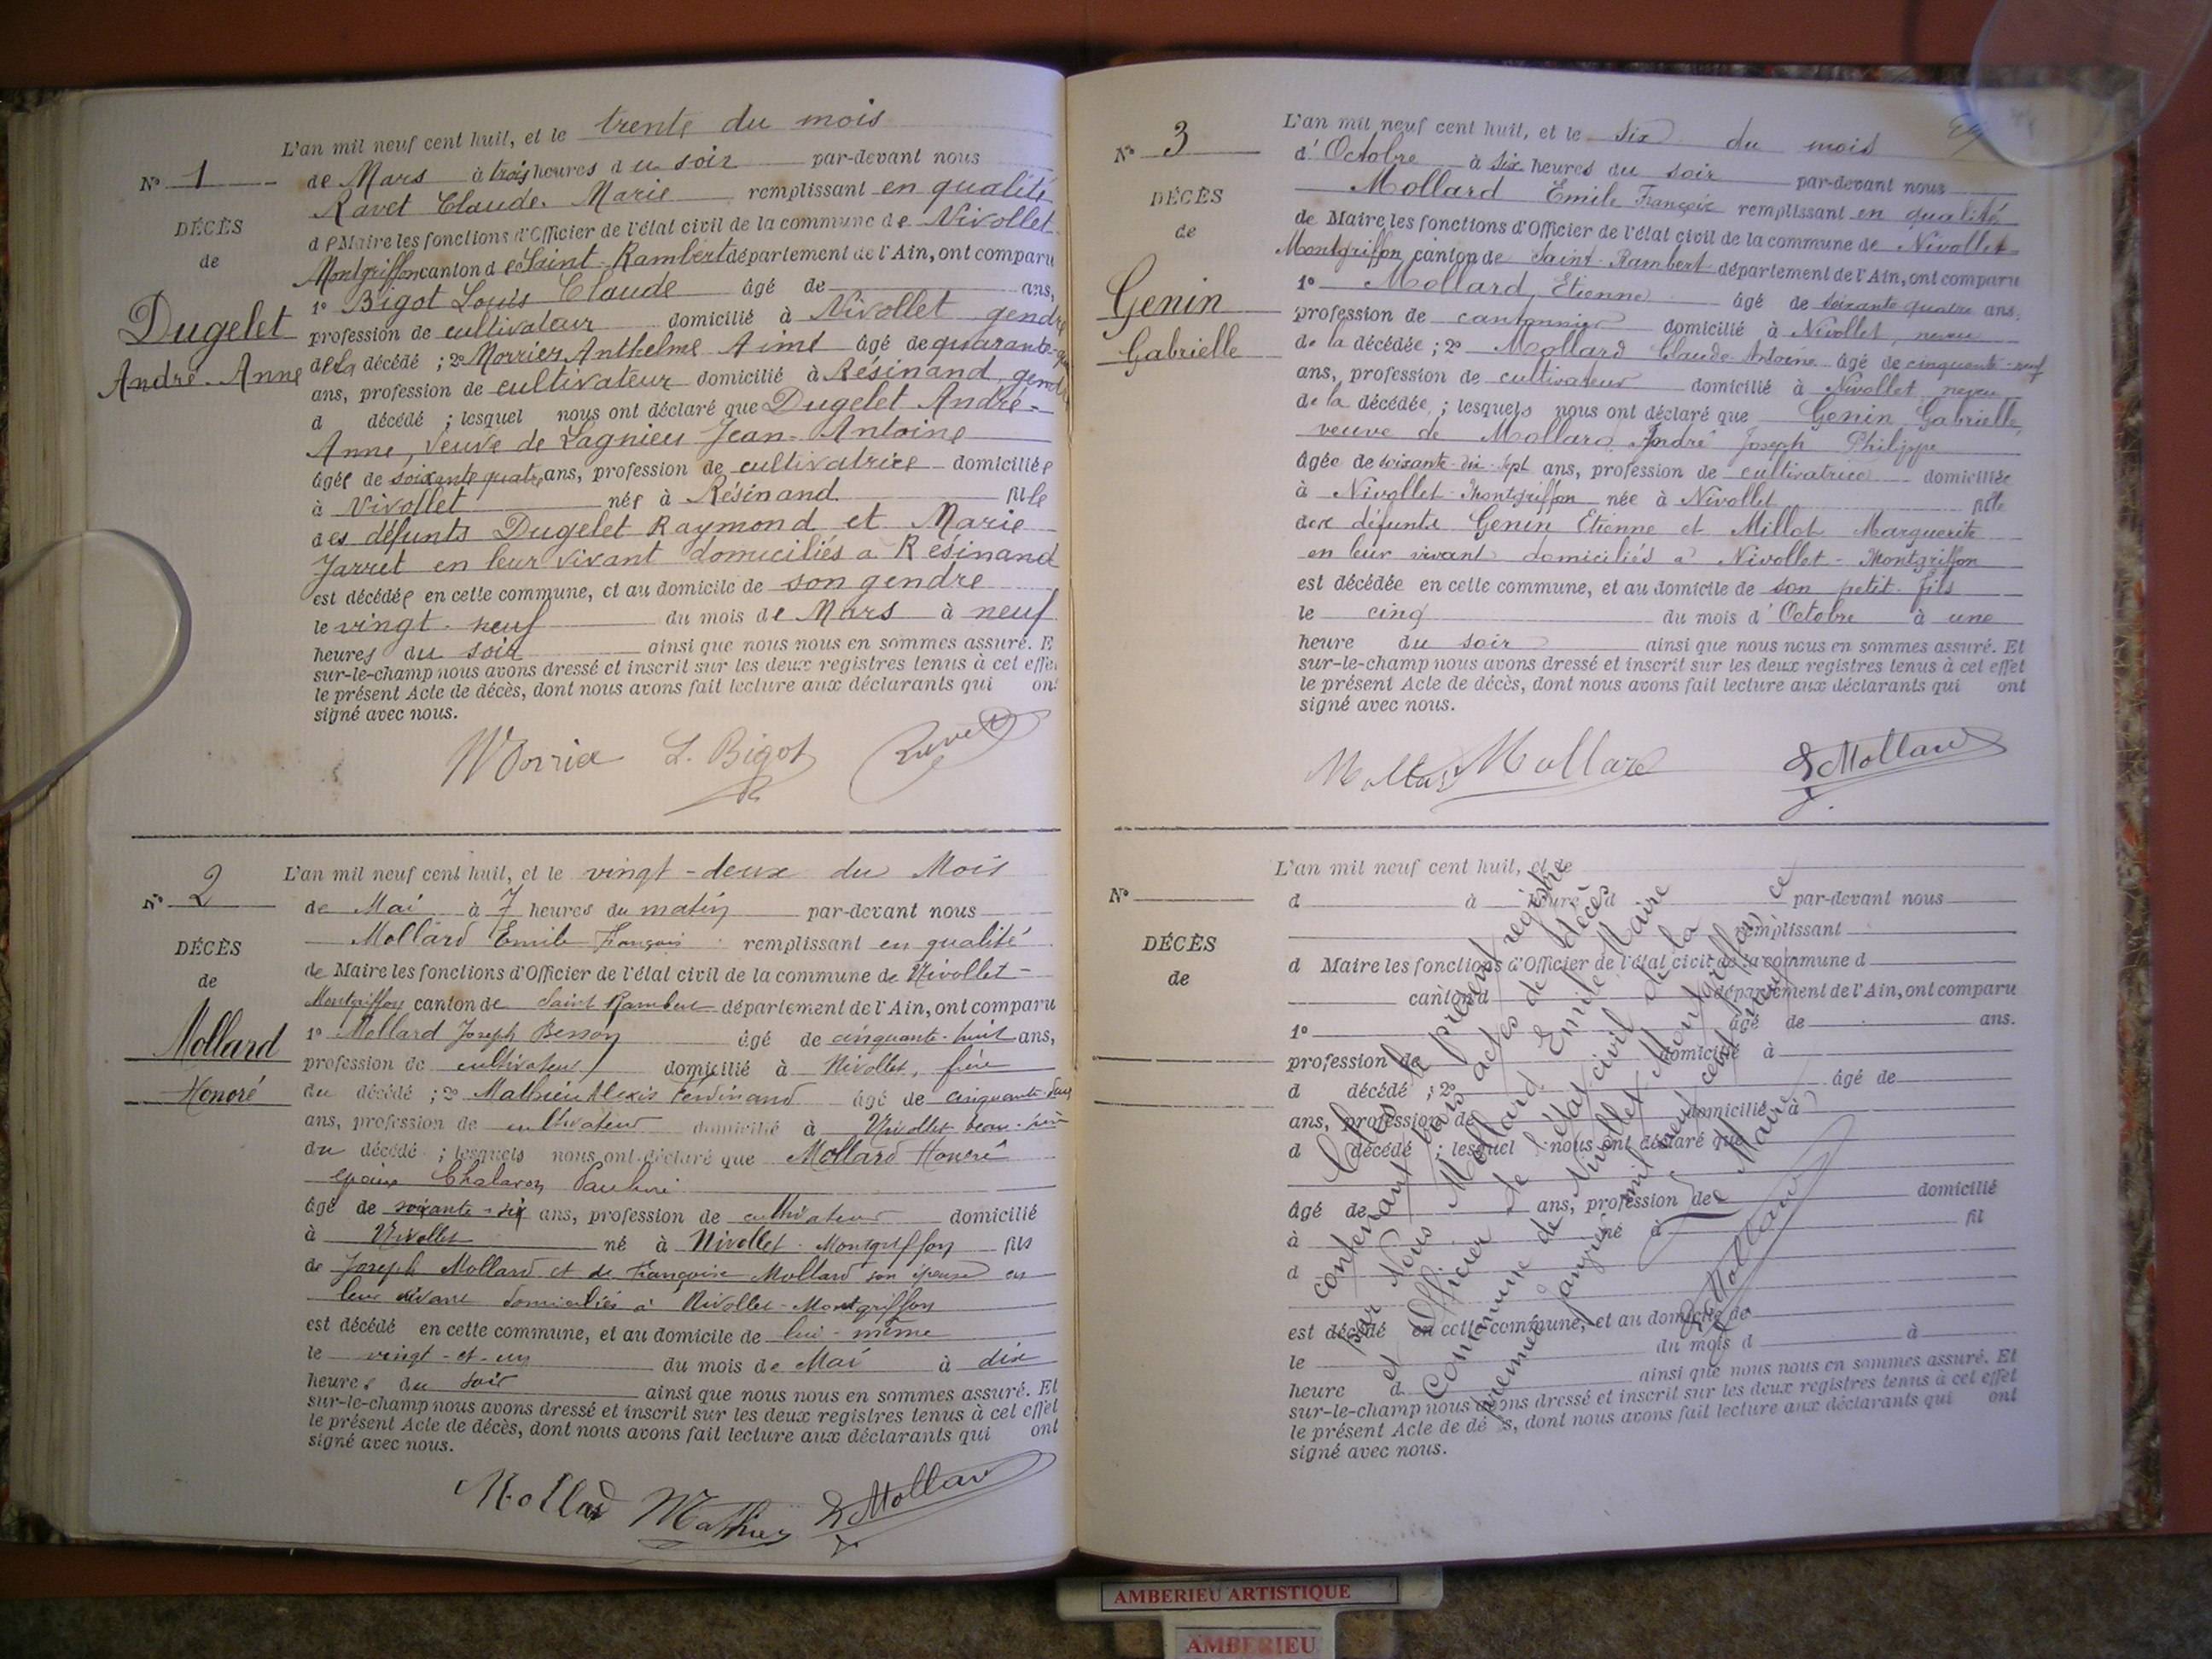 L'an mil neuf cent huit, et le trente du mois
N° 1
de Mars à trois heures du soir par-devant nous
Ravet Claude-Marie remplissant en qualité
DÉCÈS
de Maire les fonctions d'Officier de l'état civil de la commune de Nivollet
de
Montgriffon canton de Saint-Rambert département de l'Ain, ont comparu
1° Bigot Louis Claude âgé de ans,
Dugelet
profession de cultivateur domicilié à Nivollet gendre
André-Anne
de la décédé ; 2° Morrier Anthelme Aimé âgé de quarante-
ans, profession de cultivateur domicilié à Résinand gendre
d décédé ; lesquel nous ont déclaré que Dugelet André-
Anne, veuve de Lagnieu Jean-Antoine
âgée de soixante quatre ans, profession de cultivatrice domiciliée
à Nivollet née à Résinand fille
des défunts Dugelet Raymond et Marie
Jarret en leur vivant domiciliés à Résinand
est décédée en cette commune, et au domicile de son gendre
le vingt-neuf du mois de Mars à neuf
heures du soir ainsi que nous nous en sommes assuré. E
sur-le-champ nous avons dressé et inscrit sur les deux registres tenus à cet effet
le présent Acte de décès, dont nous avons fait lecture aux déclarants qui ont
signé avec nous.
Morrier L. Bigot Ravet
L'an mil neuf cent huit, et le vingt-deux du Mois
N° 2
de Mai à 7 heures du matin par-devant nous
Mollard Emile François remplissant en qualité
DÉCÈS
de Maire les fonctions d'Officier de l'état civil de la commune de Nivollet-
de
Montgriffon canton de Saint Rambert département de l'Ain, ont comparu
Mollard
1° Mollard Joseph Besson âgé de cinquante-huit ans,
profession de cultivateur domicilié à Nivollet, frère
Honoré
du décédé ; 2° Mathieu Alexis Ferdinand âgé de cinquante-
ans, profession de cultivateur domicilié à Nivollet beau-frère
du décédé ; lesquels nous ont déclaré que Mollard Honoré
époux Chalaron Pauline
âgé de soixante-six ans, profession de cultivateur domicilié
à Nivollet né à Nivollet-Montgriffon fils
de Joseph Mollard et de Françoise Mollard son épouse en
leur vivant domiciliés à Nivollet-Montgriffon
est décédé en cette commune, et au domicile de lui-même
le vingt-et-un du mois de Mai à dix
heures du soir ainsi que nous nous en sommes assuré. Et
sur-le-champ nous avons dressé et inscrit sur les deux registres tenus à cet effet
le présent Acte de décès, dont nous avons fait lecture aux déclarants qui ont
signé avec nous.
Mollard Mathieu E Mollard
L'an mil neuf cent huit, et le six du mois
N° 3
d'Octobre à six heures du soir par-devant nous
DÉCÈS
Mollard Emile François remplissant en qualité
de
de Maire les fonctions d'Officier de l'état civil de la commune de Nivollet
Montgriffon canton de Saint-Rambert département de l'Ain, ont comparu
Genin
1° Mollard Etienne âgé de soixante quatre ans,
profession de cantonnier domicilié à Nivollet, neveu
Gabrielle
de la décédée ; 2° Mollard Claude-Antoine âgé de cinquante-neuf
ans, profession de cultivateur domicilié à Nivollet neveu
de la décédée ; lesquels nous ont déclaré que Genin Gabrielle,
veuve de Mollard André Joseph Philippe
âgée de soixante-dix-sept ans, profession de cultivatrice domiciliée
à Nivollet-Montgriffon née à Nivollet fille
des défunts Genin Etienne et Millot Marguerite
en leur vivant domiciliés à Nivollet-Montgriffon
est décédée en cette commune, et au domicile de son petit-fils
le cinq du mois d'Octobre à une
heure du soir ainsi que nous nous en sommes assuré. Et
sur-le-champ nous avons dressé et inscrit sur les deux registres tenus à cet effet
le présent Acte de décès, dont nous avons fait lecture aux déclarants qui ont
signé avec nous.
Mollard Mollard E Mollard
L'an mil neuf cent huit, et le
N°
d à heure d par-devant nous
remplissant
DÉCÈS
d Maire les fonctions d'Officier de l'état civil de la commune d
de
canton d département de l'Ain, ont comparu
1° âgé de ans.
profession de domicilié à
d décédé ; 2° âgé de
ans, profession de domicilié à
d décédé ; lesquel nous ont déclaré que
âgé de ans, profession de domicilié
à né à fil
d
est décédé en cette commune, et au domicile de
le du mois d à
heure d ainsi que nous nous en sommes assuré. Et
sur-le-champ nous avons dressé et inscrit sur les deux registres tenus à cet effet
le présent Acte de dé s, dont nous avons fait lecture aux déclarants qui ont
signé avec nous.
Clos le présent registre
contenant trois actes de décès
par Nous Mollard Emile Maire
et Officier de l'état civil de la
Commune de Nivollet-Montgriffon ce
premier janvier mil neuf cent neuf
Le Maire
E Mollard
AMBERIEU ARTISTIQUE
AMBERIEU